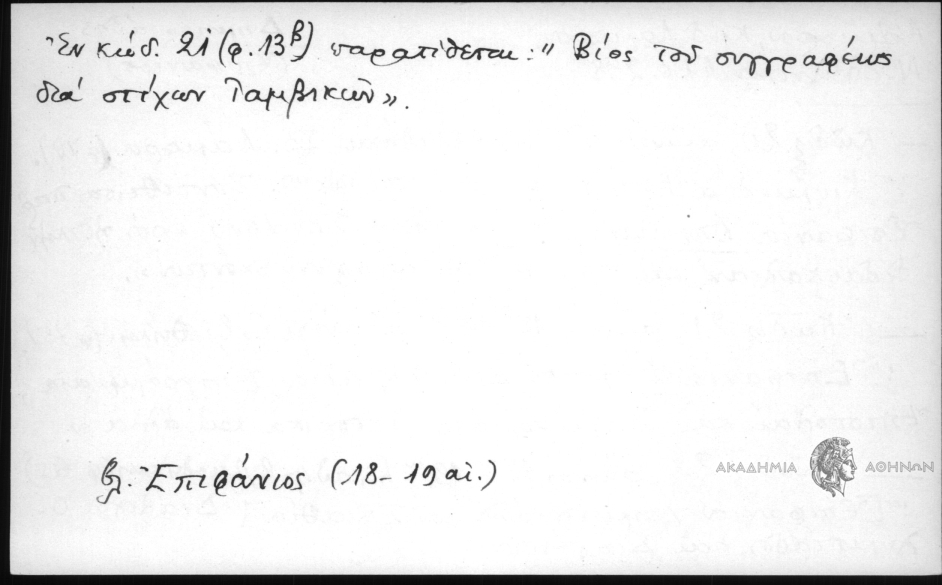 Ἐν κώδ. 21 (φ. 13β) παρατίθεται: " Βίος τοῦ συγγραφέως
διὰ στίχων Ἰαμβικῶν».
βλ. Ἐπιφάνιος (18-19 αἰ.)
ΑΚΑΔΗΜΙΑ ΑΘΗΝΩΝ